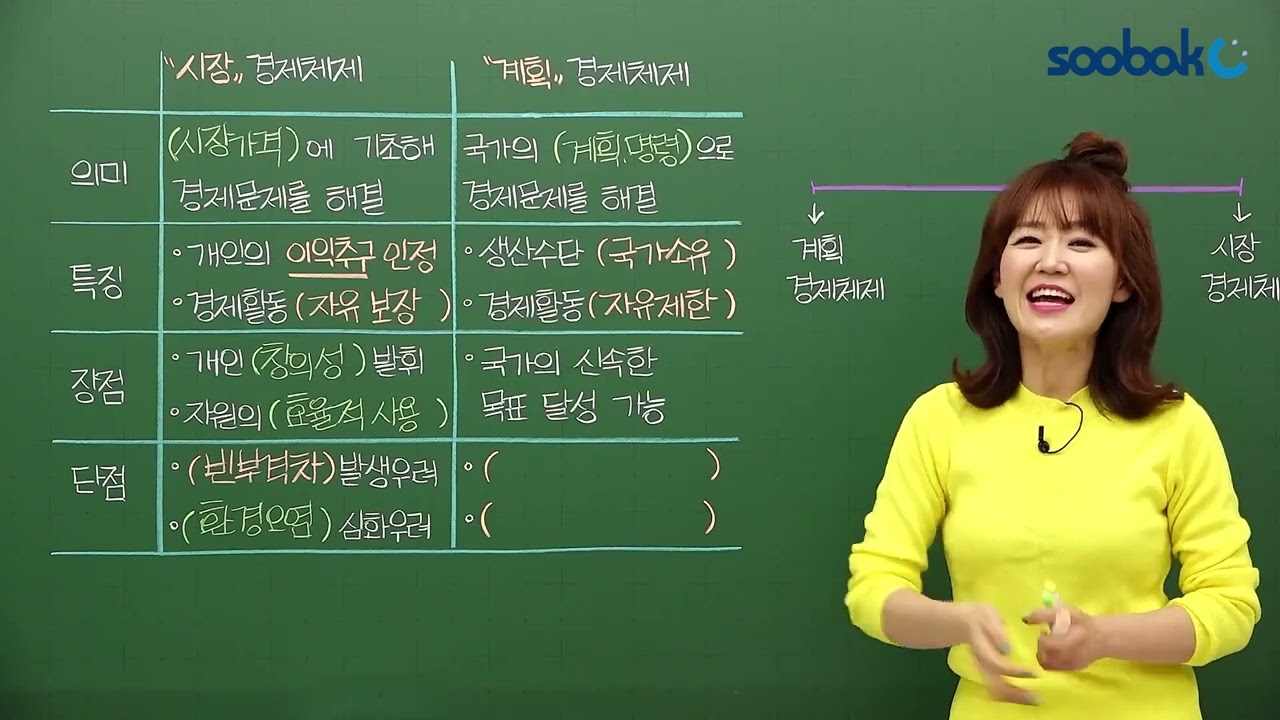 soobak
"시장" 경제체제
"계획" 경제체제
의미
(시장가격)에 기초해
경제문제를 해결
국가의 (계획, 명령)으로
경제문제를 해결
특징
• 개인의 이익추구 인정
• 경제활동 (자유 보장 )
• 생산수단 (국가소유 )
• 경제활동 (자유제한 )
장점
• 개인 (창의성 ) 발휘
• 자원의 (효율적 사용 )
• 국가의 신속한
목표 달성 가능
단점
• (빈부격차) 발생우려
• (환경오염) 심화우려
• ( )
• ( )
계획
경제체제
시장
경제체